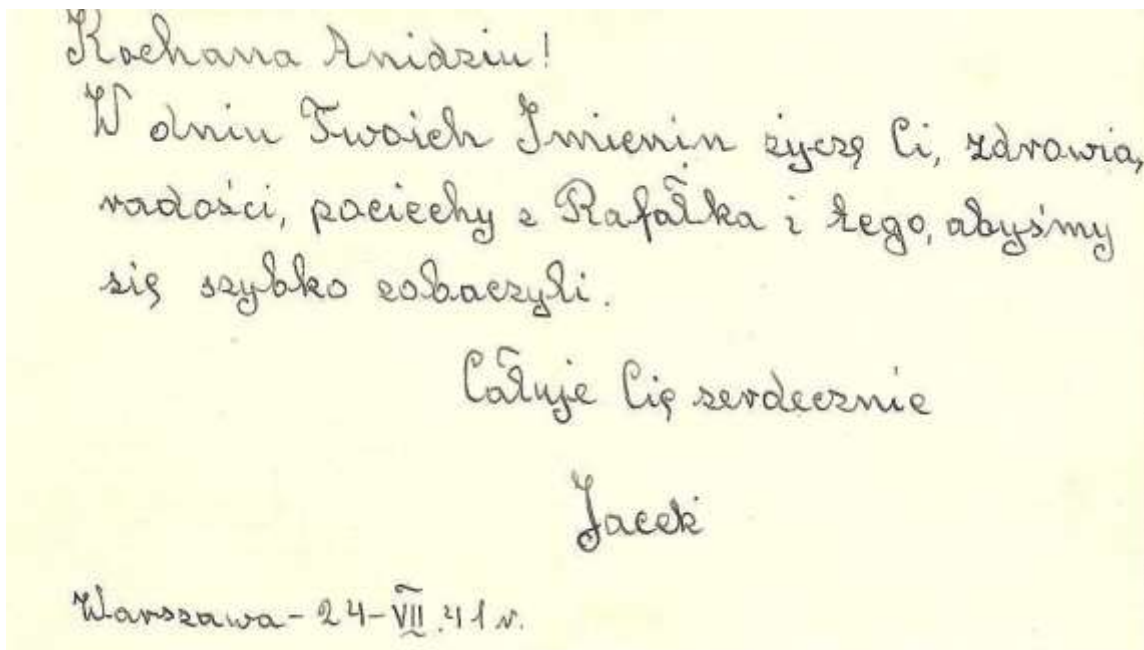 Kochana Anidziu!
W dniu Twoich Imienin życzę Ci, zdrowia,
radości, pociechy z Rafałka i tego, abyśmy
się szybko zobaczyli.
Całuje Cię serdecznie
Jacek
Warszawa - 24 - VII. 41 r.